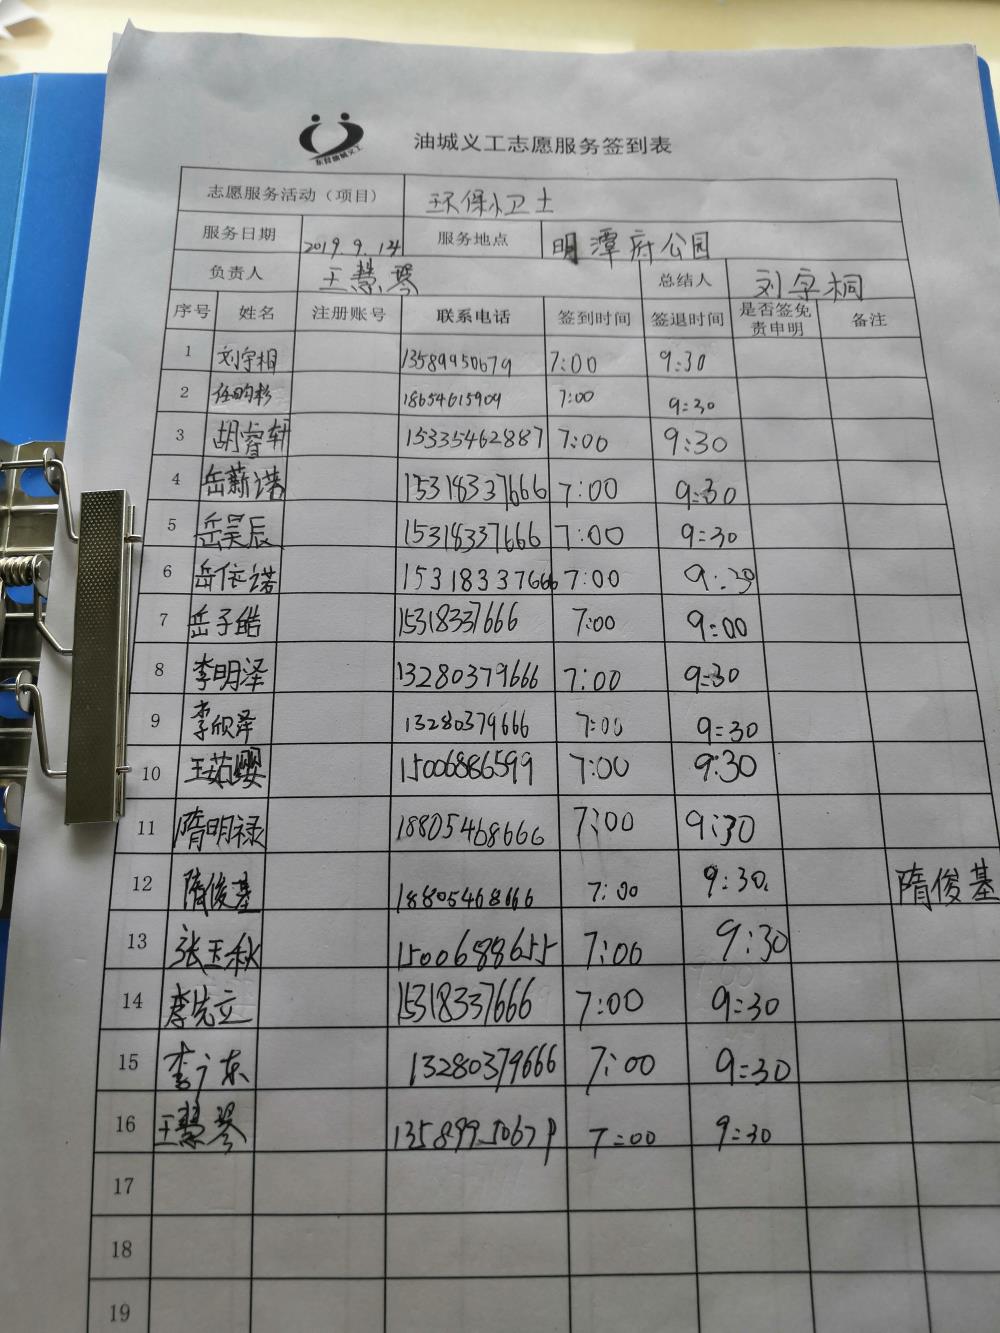 东营油城义工
油城义工志愿服务签到表
志愿服务活动（项目） 环保小卫士
服务日期 2019.9.14 服务地点 明潭府公园
负责人 王慧琴 总结人 刘宇桐
序号 姓名 注册账号 联系电话 签到时间 签退时间 是否签免责申明 备注
1 刘宇桐 13589950679 7:00 9:30
2 18654615909 7:00 9:30
3 胡睿轩 15335462887 7:00 9:30
4 岳薪诺 15318337666 7:00 9:30
5 岳昊辰 15318337666 7:00 9:30
6 岳依诺 15318337666 7:00 9:30
7 岳子皓 15318337666 7:00 9:00
8 李明泽 13280379666 7:00 9:30
9 李欣泽 13280379666 7:00 9:30
10 王茹璎 15006886599 7:00 9:30
11 隋明禄 18805468666 7:00 9:30
12 隋俊基 18805468666 7:00 9:30 隋俊基
13 张玉秋 15006888655 7:00 9:30
14 李先立 15318337666 7:00 9:30
15 李广东 13280379666 7:00 9:30
16 王慧琴 13589950679 7:00 9:30
17
18
19